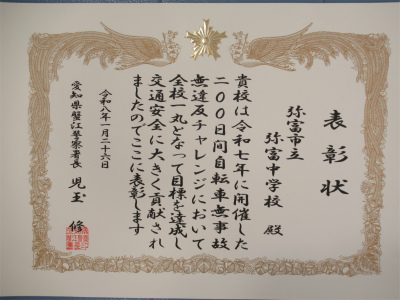 表彰状
弥富市立
弥富中学校 殿
貴校は令和七年に開催した
二〇〇日間自転車無事故
無違反チャレンジにおいて
全校一丸となって目標を達成し
交通安全に大きく貢献され
ましたのでここに表彰します
令和八年一月二十六日
愛知県蟹江警察署長 児玉 修